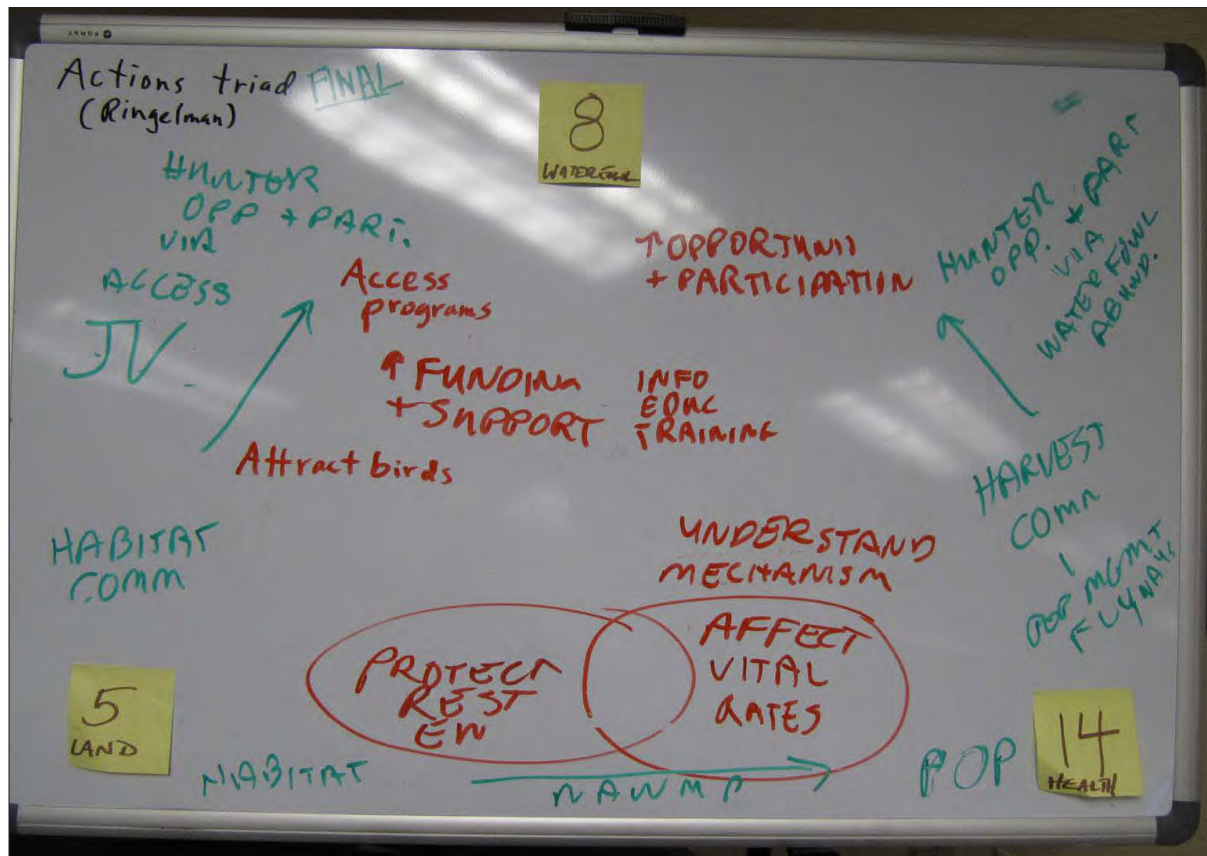 Actions triad FINAL
(Ringelman)
8
WATERFOWL
HUNTER
OPP + PART.
VIA
ACCESS
JV
Access
programs
↑ OPPORTUNII
+ PARTICIPATION
HUNTER
OPP. + PART
VIA
WATERFOWL
ABUND.
↑ FUNDING
+ SUPPORT
INFO
EDUC
TRAINING
Attract birds
HARVEST
COMM
POP MGMT
FLYWAYS
HABITAT
COMM
UNDERSTAND
MECHANISM
PROTECT
REST
EN
AFFECT
VITAL
RATES
5
LAND
HABITAT
NAWMP
POP
14
HEALTH